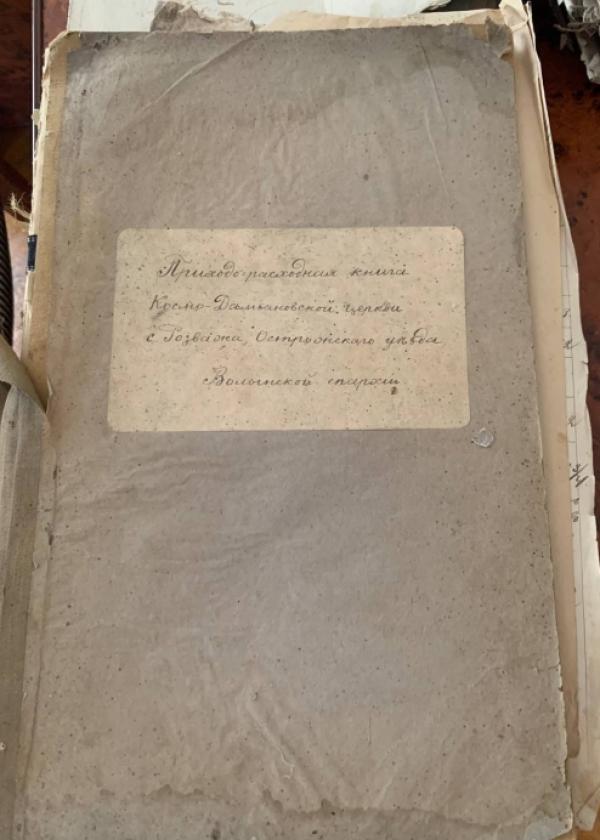 Приходо-расходная книга
Космо-Дамиановской церкви
с. Розважа, Острожскаго уѣзда
Волынской епархіи